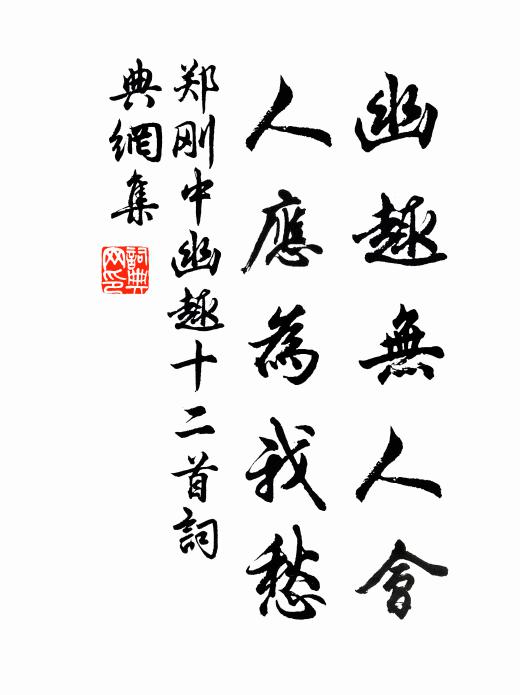 幽趣無人會
人應為我愁
郑刚中幽趣十二首詞
典網集
詞典网印